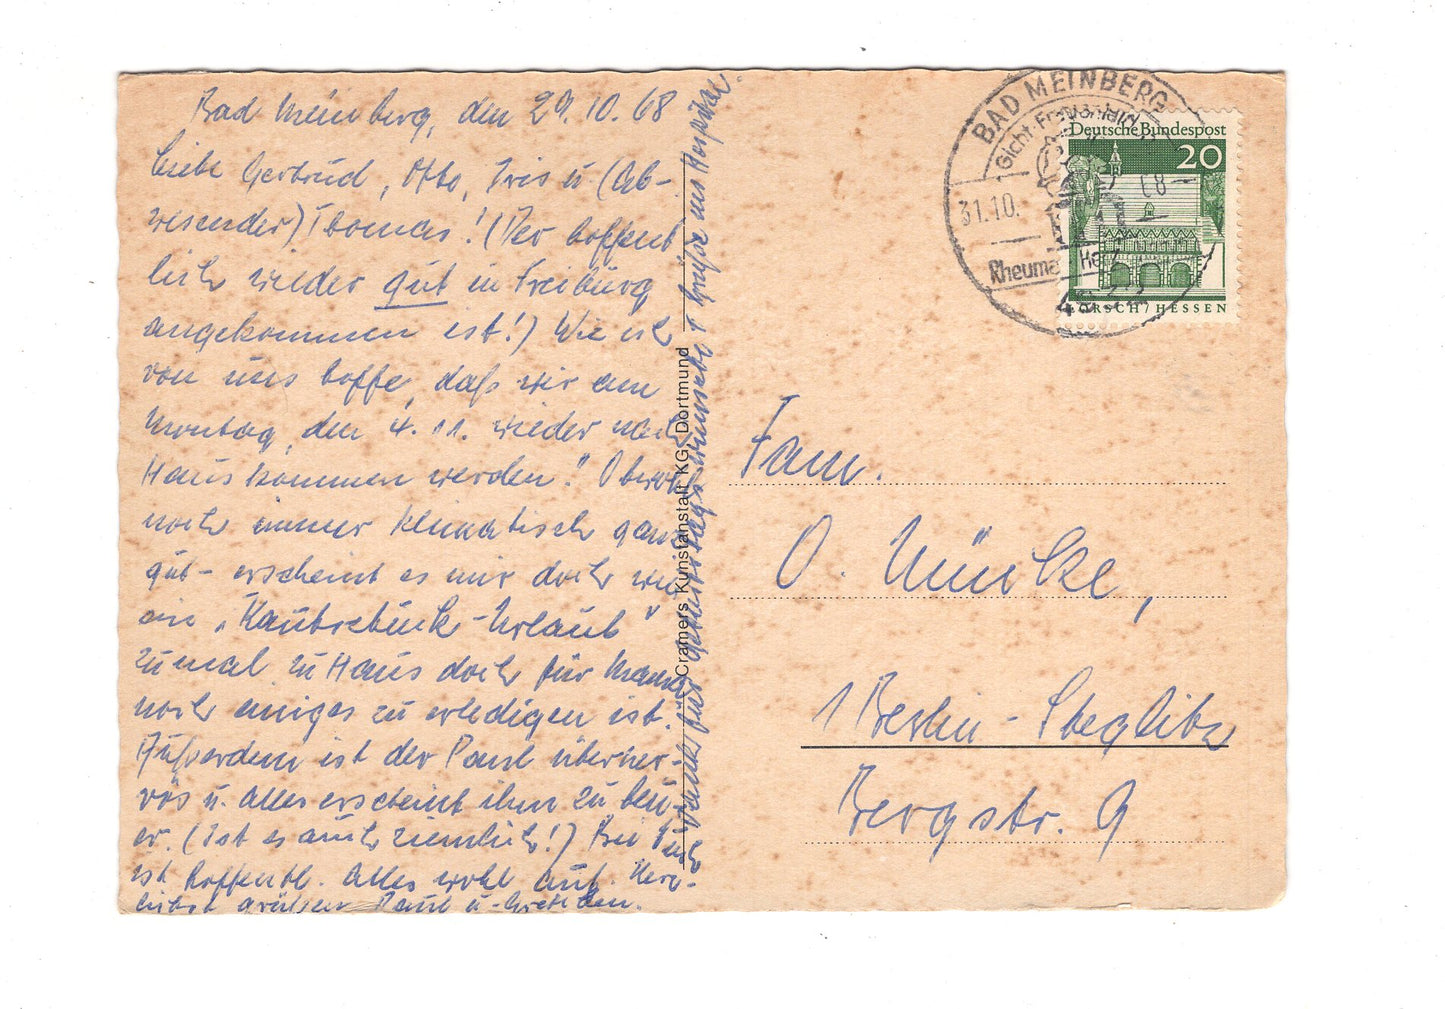 Bad Meinberg, den 29.10.68
Liebe Gertrud, Otto, Iris u (Ab-
wesender) Thomas! (Der hoffent
lich wieder gut in Freiburg
angekommen ist!) Wie ich
von uns hoffe, daß wir am
Montag, den 4.11. wieder nach
Haus kommen werden". Obwohl
noch immer klimatisch ganz
gut - erscheint es mir doch wie
ein "Kautschuck-Urlaub"
zumal zu Haus doch für Mama
noch einiges zu erledigen ist.
Außerdem ist der Paul überner-
vös u. alles erscheint ihm zu teu-
er. (Ist es auch ziemlich!) Bei Euch
ist hoffentl. alles wohl auf. Herz-
lichst grüßen Paul u. Gretchen.
Dank für Geburtstagswünsche + Grüße ins Hospital.
Cramers Kunstanstalt KG, Dortmund
BAD MEINBERG
Gicht
31.10. 68
Rheuma Herz
Deutsche Bundespost
20
LORSCH / HESSEN
Fam.
O. Müncke,
1 Berlin-Steglitz
Bergstr. 9